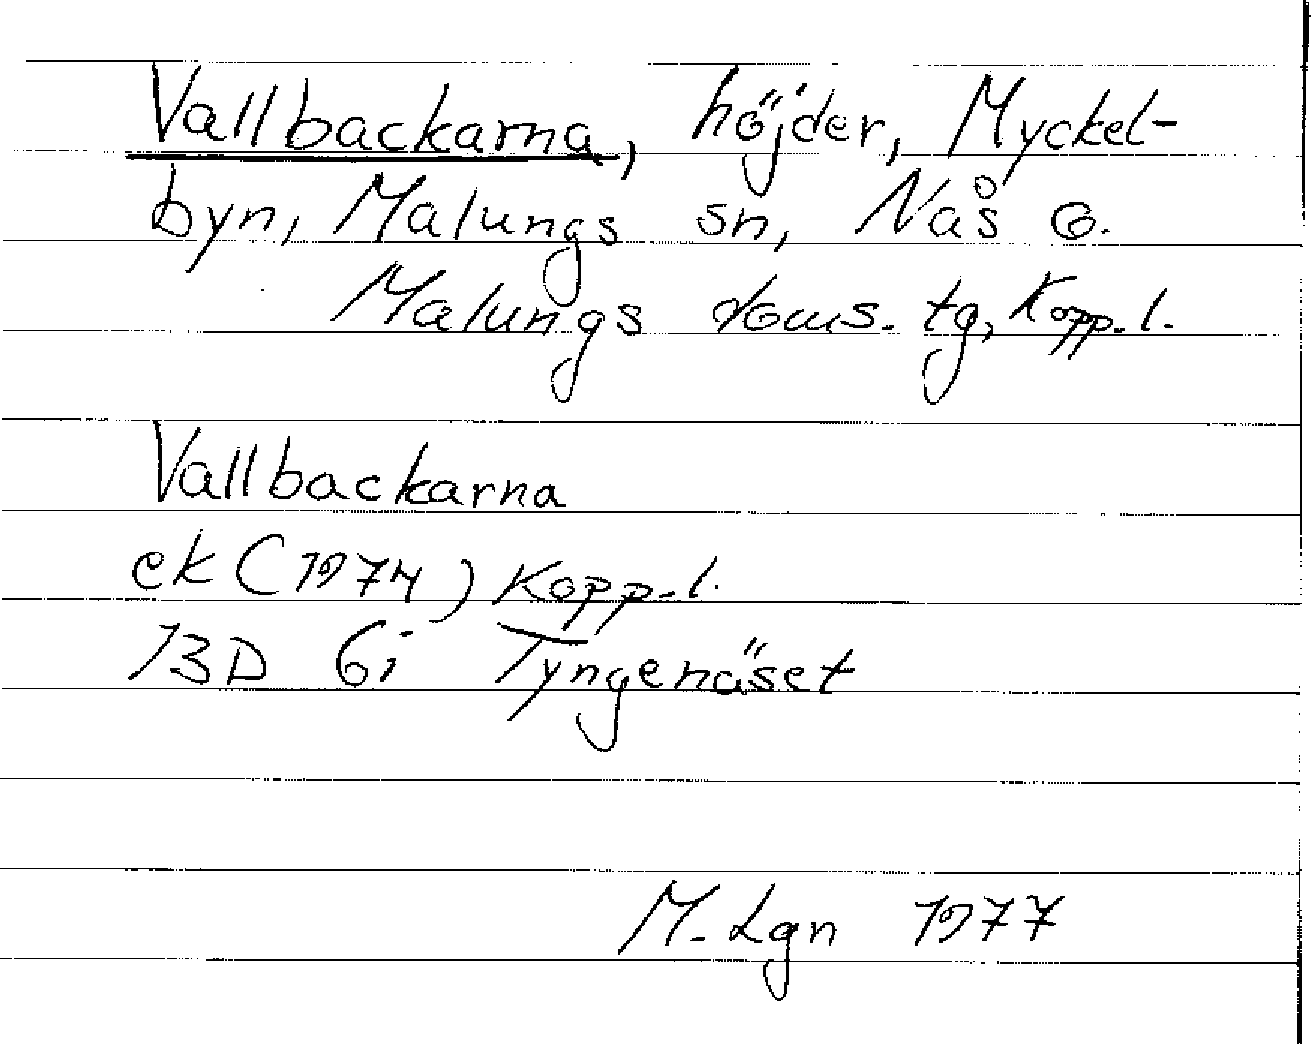 Vallbackarna, höjder, Myckel-
byn, Malungs sn, Nås o.
Malungs doms. tg, Kopp. l.
Vallbackarna
ek (1974) Kopp. l.
13D 6i Tyngenäset
M. Lgn 1977